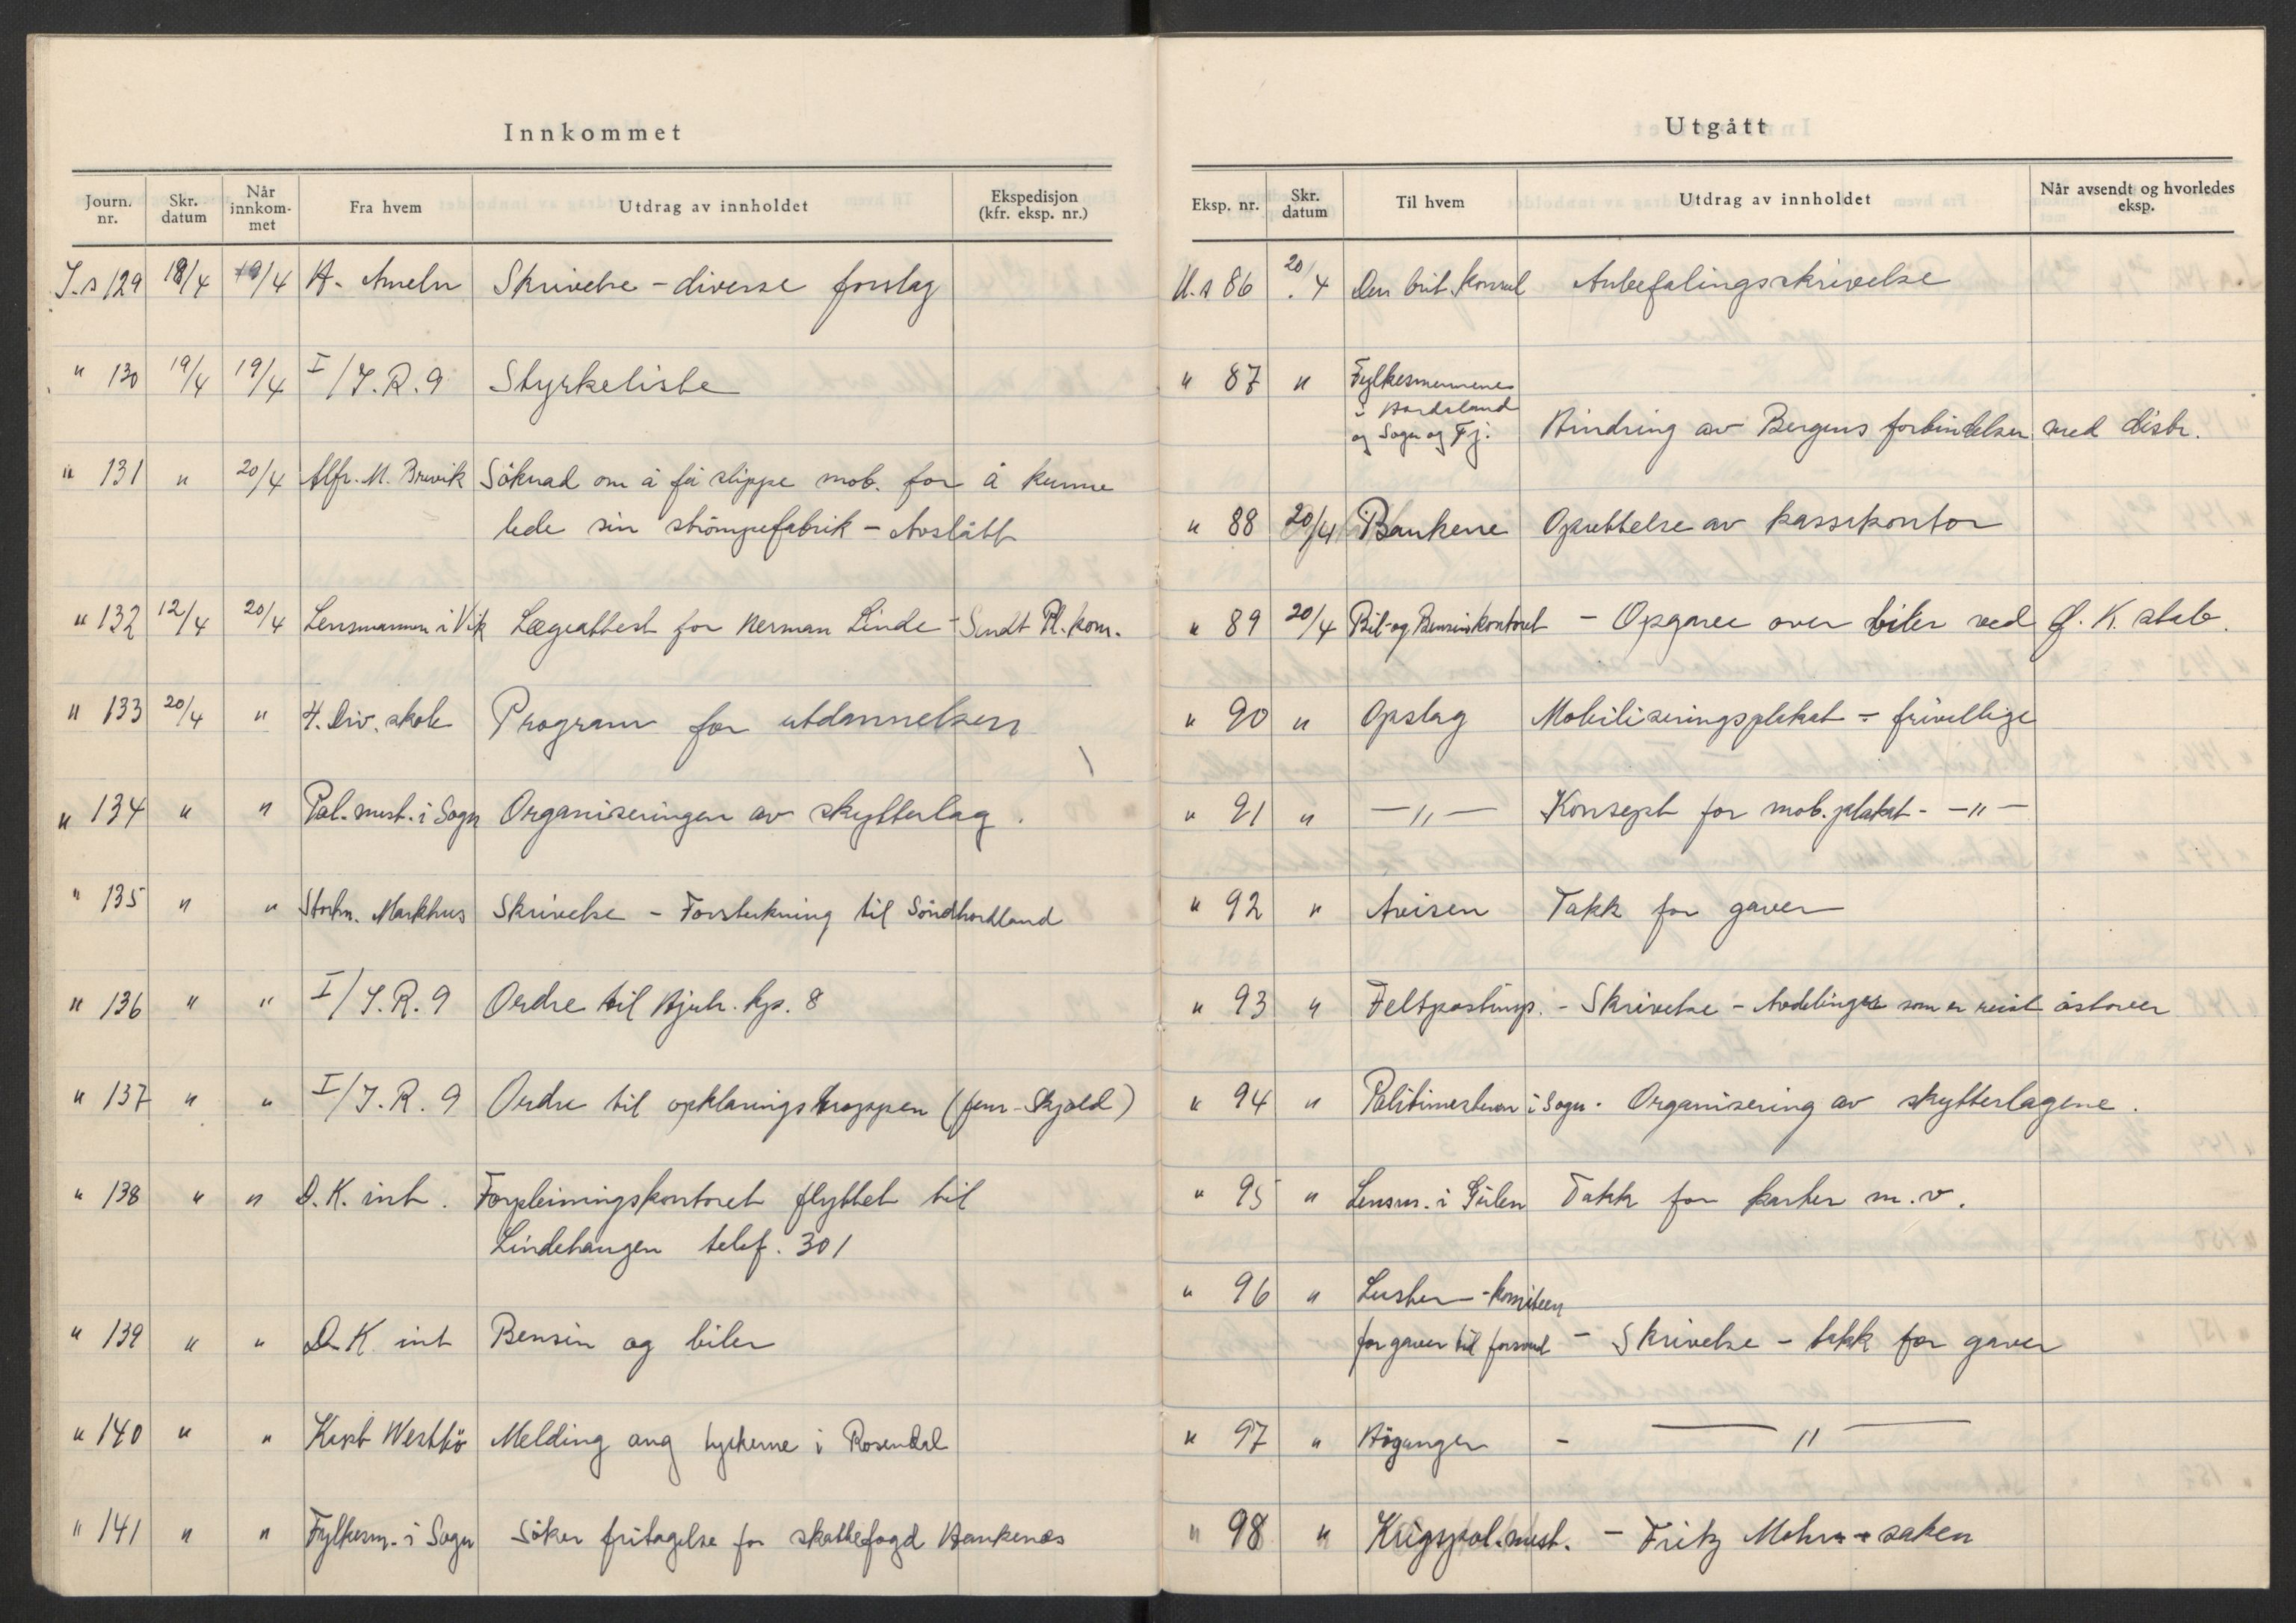 Innkommet
Journ. nr. Skr. datum Når innkom- met Fra hvem Utdrag av innholdet Ekspedisjon (kfr. eksp. nr.)
J.s 129 18/4 19/4 H. Ameln Skrivelse - diverse forslag
" 130 19/4 19/4 I/I.R.9 Styrkeliste
" 131 " 20/4 Alfr. M. Brevik Söknad om å få slippe mob. for å kunne
lede sin strömpefabrik - Avslått
" 132 12/4 20/4 Lensmannen i Vik Lægeattest for Herman Linde - Sendt Pl. kom.
" 133 20/4 " 4. Div. skole Program for utdannelsen
" 134 " " Pol. mest. i Sogn Organiseringen av skytterlag.
" 135 " " Storm. Markhus Skrivelse - Forsterkning til Söndhordland
" 136 " " I/I.R.9 Ordre til Hjulr. kp. 8
" 137 " " I/I.R.9 Ordre til opklaringstroppen (fenr. Skjold)
" 138 " " D.K. int. Forpleiningskontoret flyttet til
Lindehaugen telef. 301
" 139 " " D.K. int Bensin og biler
" 140 " " Kapt Westbö Melding ang tyskerne i Rosendal
" 141 " " Fylkesm. i Sogn Söker fritagelse for skattefogd Hankenæs
Utgått
Eksp. nr. Skr. datum Til hvem Utdrag av innholdet Når avsendt og hvorledes eksp.
U.s 86 20/4 Den brit. konsul Anbefalingsskrivelse
" 87 " Fylkesmennene
i Hordaland
og Sogn og Fj. Hindring av Bergens forbindelser med distr.
" 88 20/4 Bankene Oprettelse av kassekontor
" 89 20/4 Bil- og Bensinkontoret - Opgave over biler ved Ø.K. stab.
" 90 " Opslag Mobiliseringsplakat - frivillige
" 91 " - " - Konsept for mob. plakat - - " -
" 92 " Avisen Takk for gaver
" 93 " Feltpostinsp. - Skrivelse - Avdelinger som er reist östover
" 94 " Politimesteren i Sogn - Organisering av skytterlagene.
" 95 " Lensm. i Gulen Takk for karter m.v.
" 96 " Luster - komiteen
for gaver til forsvaret - Skrivelse - takk for gaver
" 97 " Höyanger - - " -
" 98 " Krigspol. mest. - Fritz Mohr - saken